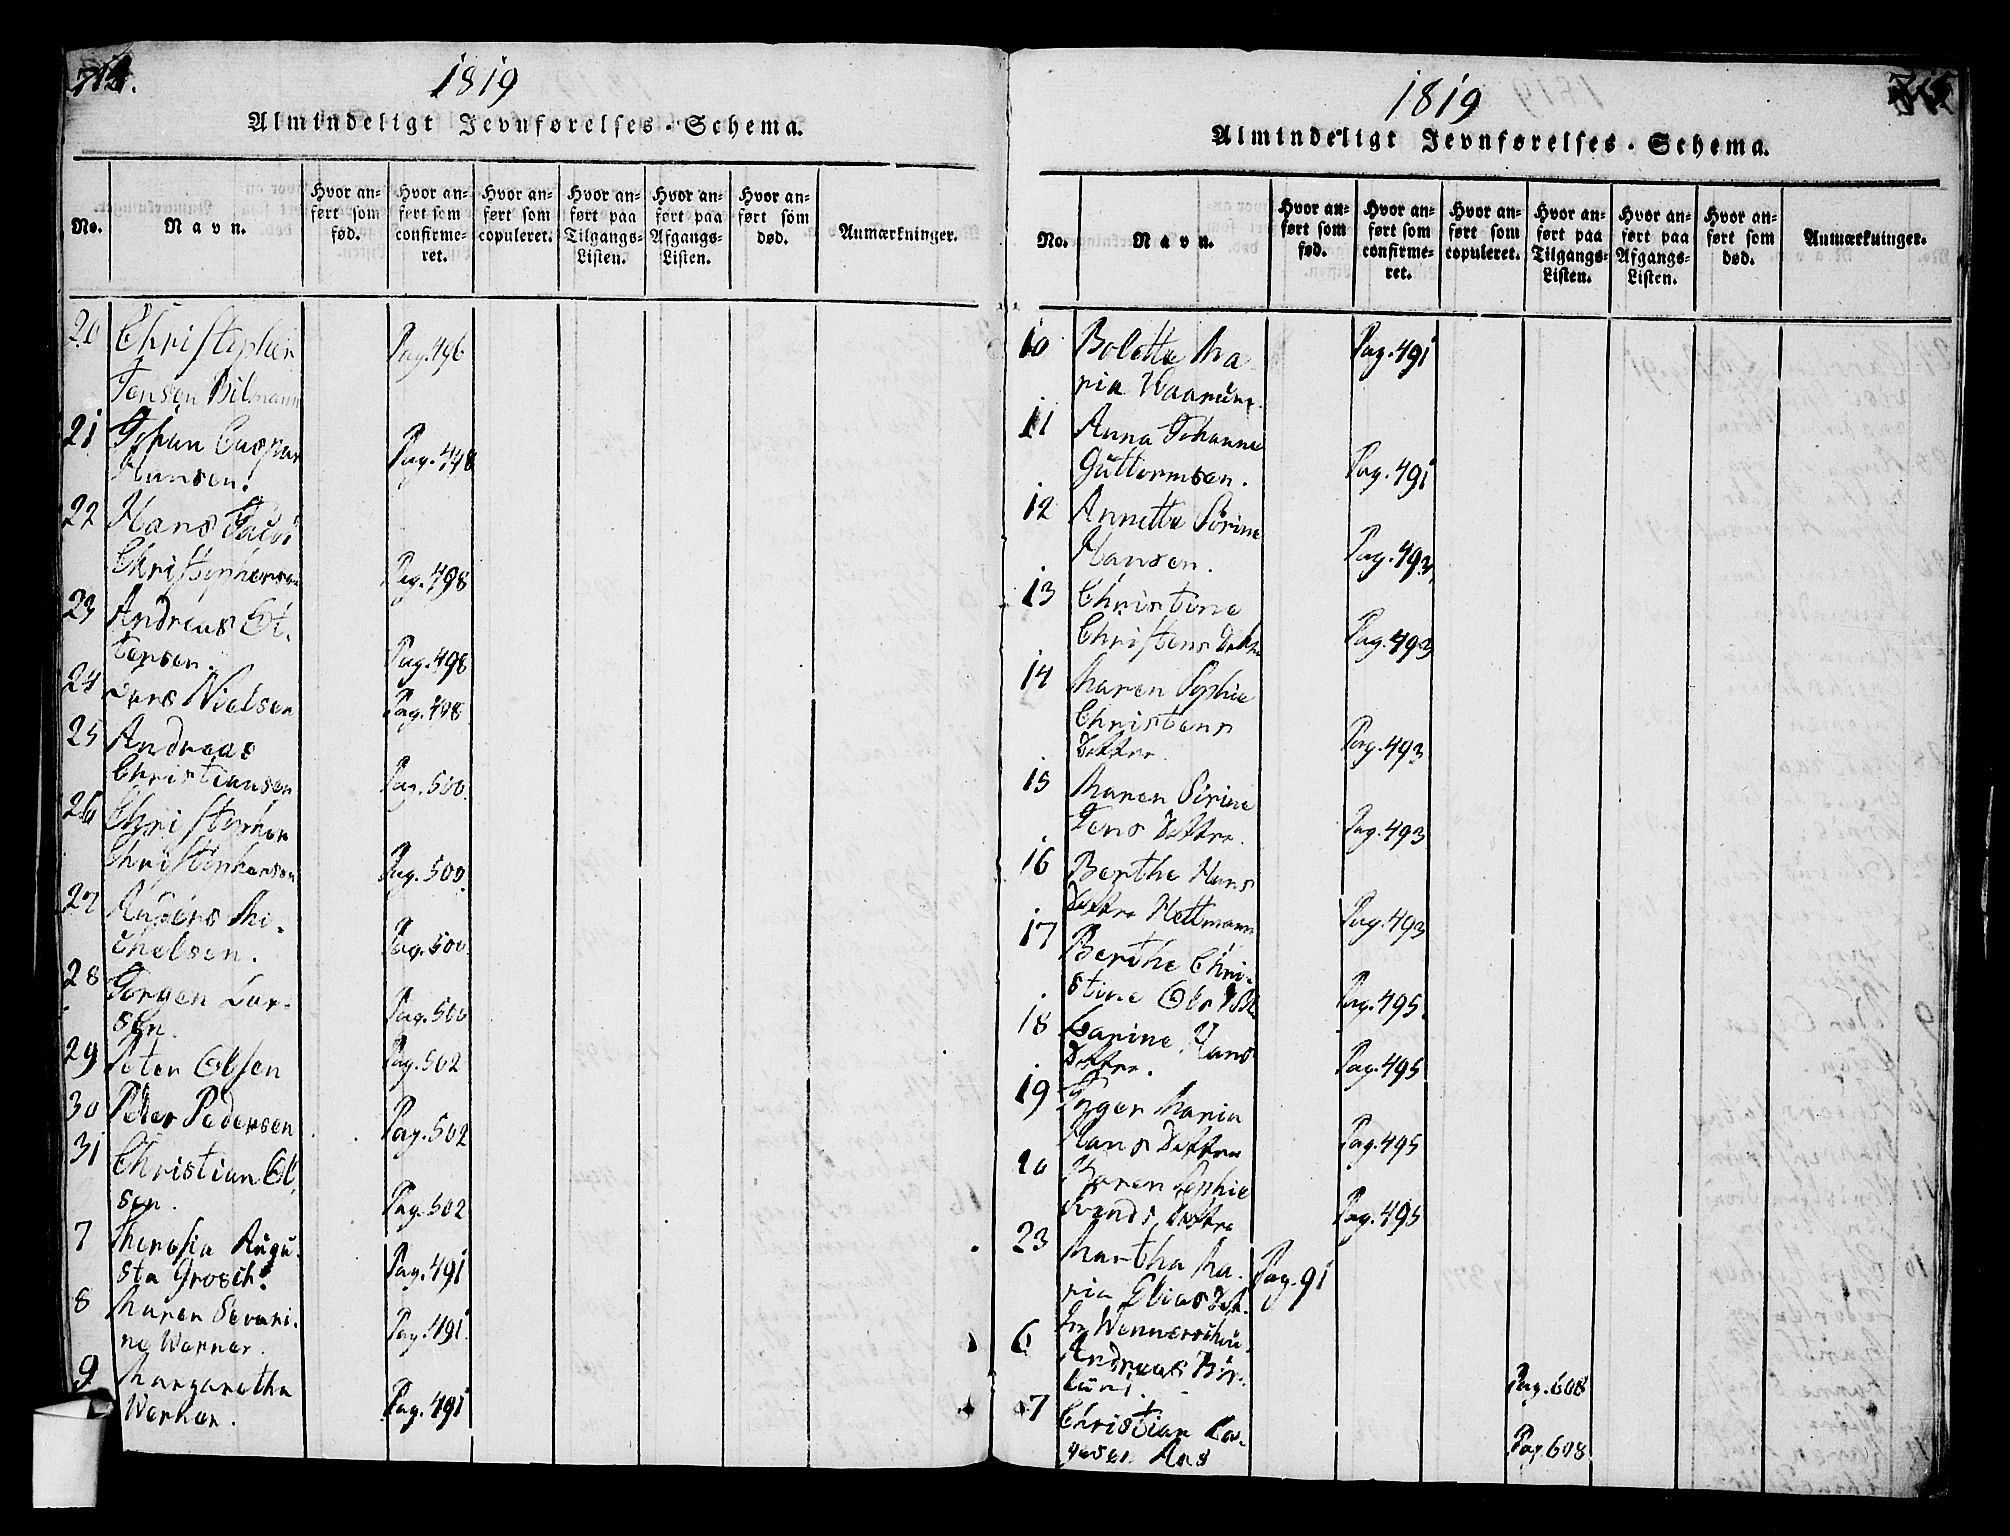 714.
1819
Almindeligt Jevnførelses-Schema.
No.
Navn.
Hvor an-
ført som
fød.
Hvor an-
ført som
confirme-
ret.
Hvor an-
ført som
copuleret.
Hvor an-
ført paa
Tilgangs-
Listen.
Hvor an-
ført paa
Afgangs-
Listen.
Hvor an-
ført som
død.
Anmærkninger.
20 Christopher Pag. 496
Jensen Bilmann
21 Johan Caspar Pag. 498
Hansen.
22 Hans Jacob
Christophersen Pag. 498
23 Andreas Ot-
tersen. Pag. 498
24 Lars Nielsen Pag. 498
25 Andreas
Christiansen Pag. 500.
26 Christopher
Christophersen Pag. 500.
27 Anders Mi-
chelsen. Pag. 500.
28 Jørgen Lar-
sen. Pag. 500
29 Peter Olsen Pag. 502
30 Peder Pedersen Pag. 502
31 Christian Ol-
sen. Pag. 502
7 Theresia Augu-
sta Grosch. Pag. 491
8 Maren Severi-
ne Werner. Pag. 491.
9 Margaretha
Werner. Pag. 491
715
1819
Almindeligt Jevnførelses-Schema.
No.
Navn.
Hvor an-
ført som
fød.
Hvor an-
ført som
confirme-
ret.
Hvor an-
ført som
copuleret.
Hvor an-
ført paa
Tilgangs-
Listen.
Hvor an-
ført paa
Afgangs-
Listen.
Hvor an-
ført som
død.
Anmærkninger.
10 Bolette Ma- Pag. 491
ria Waarum.
11 Anna Johanne
Guttormsen. Pag. 491
12 Annette Sørine
Hansen. Pag. 493.
13 Christine
Christens Dattr Pag. 493
14 Maren Sophie
Christens
Dattre. Pag. 493
15 Maren Sirine
Jens Dattre. Pag. 493
16 Berthe Hans
Dattre Hettmann Pag. 493
17 Berthe Chri-
stine Pag. 495.
18 Carine Hans
Dattre. Pag. 495
19 Inger Maria
Hans Dattre Pag. 495
20 Karen Sophie
Svends Dattre Pag. 495
23 Martha Ma- Pag. 91
ria Elias Dat-
6 Andreas
Pag. 608
7 Christian
Aas Pag. 608